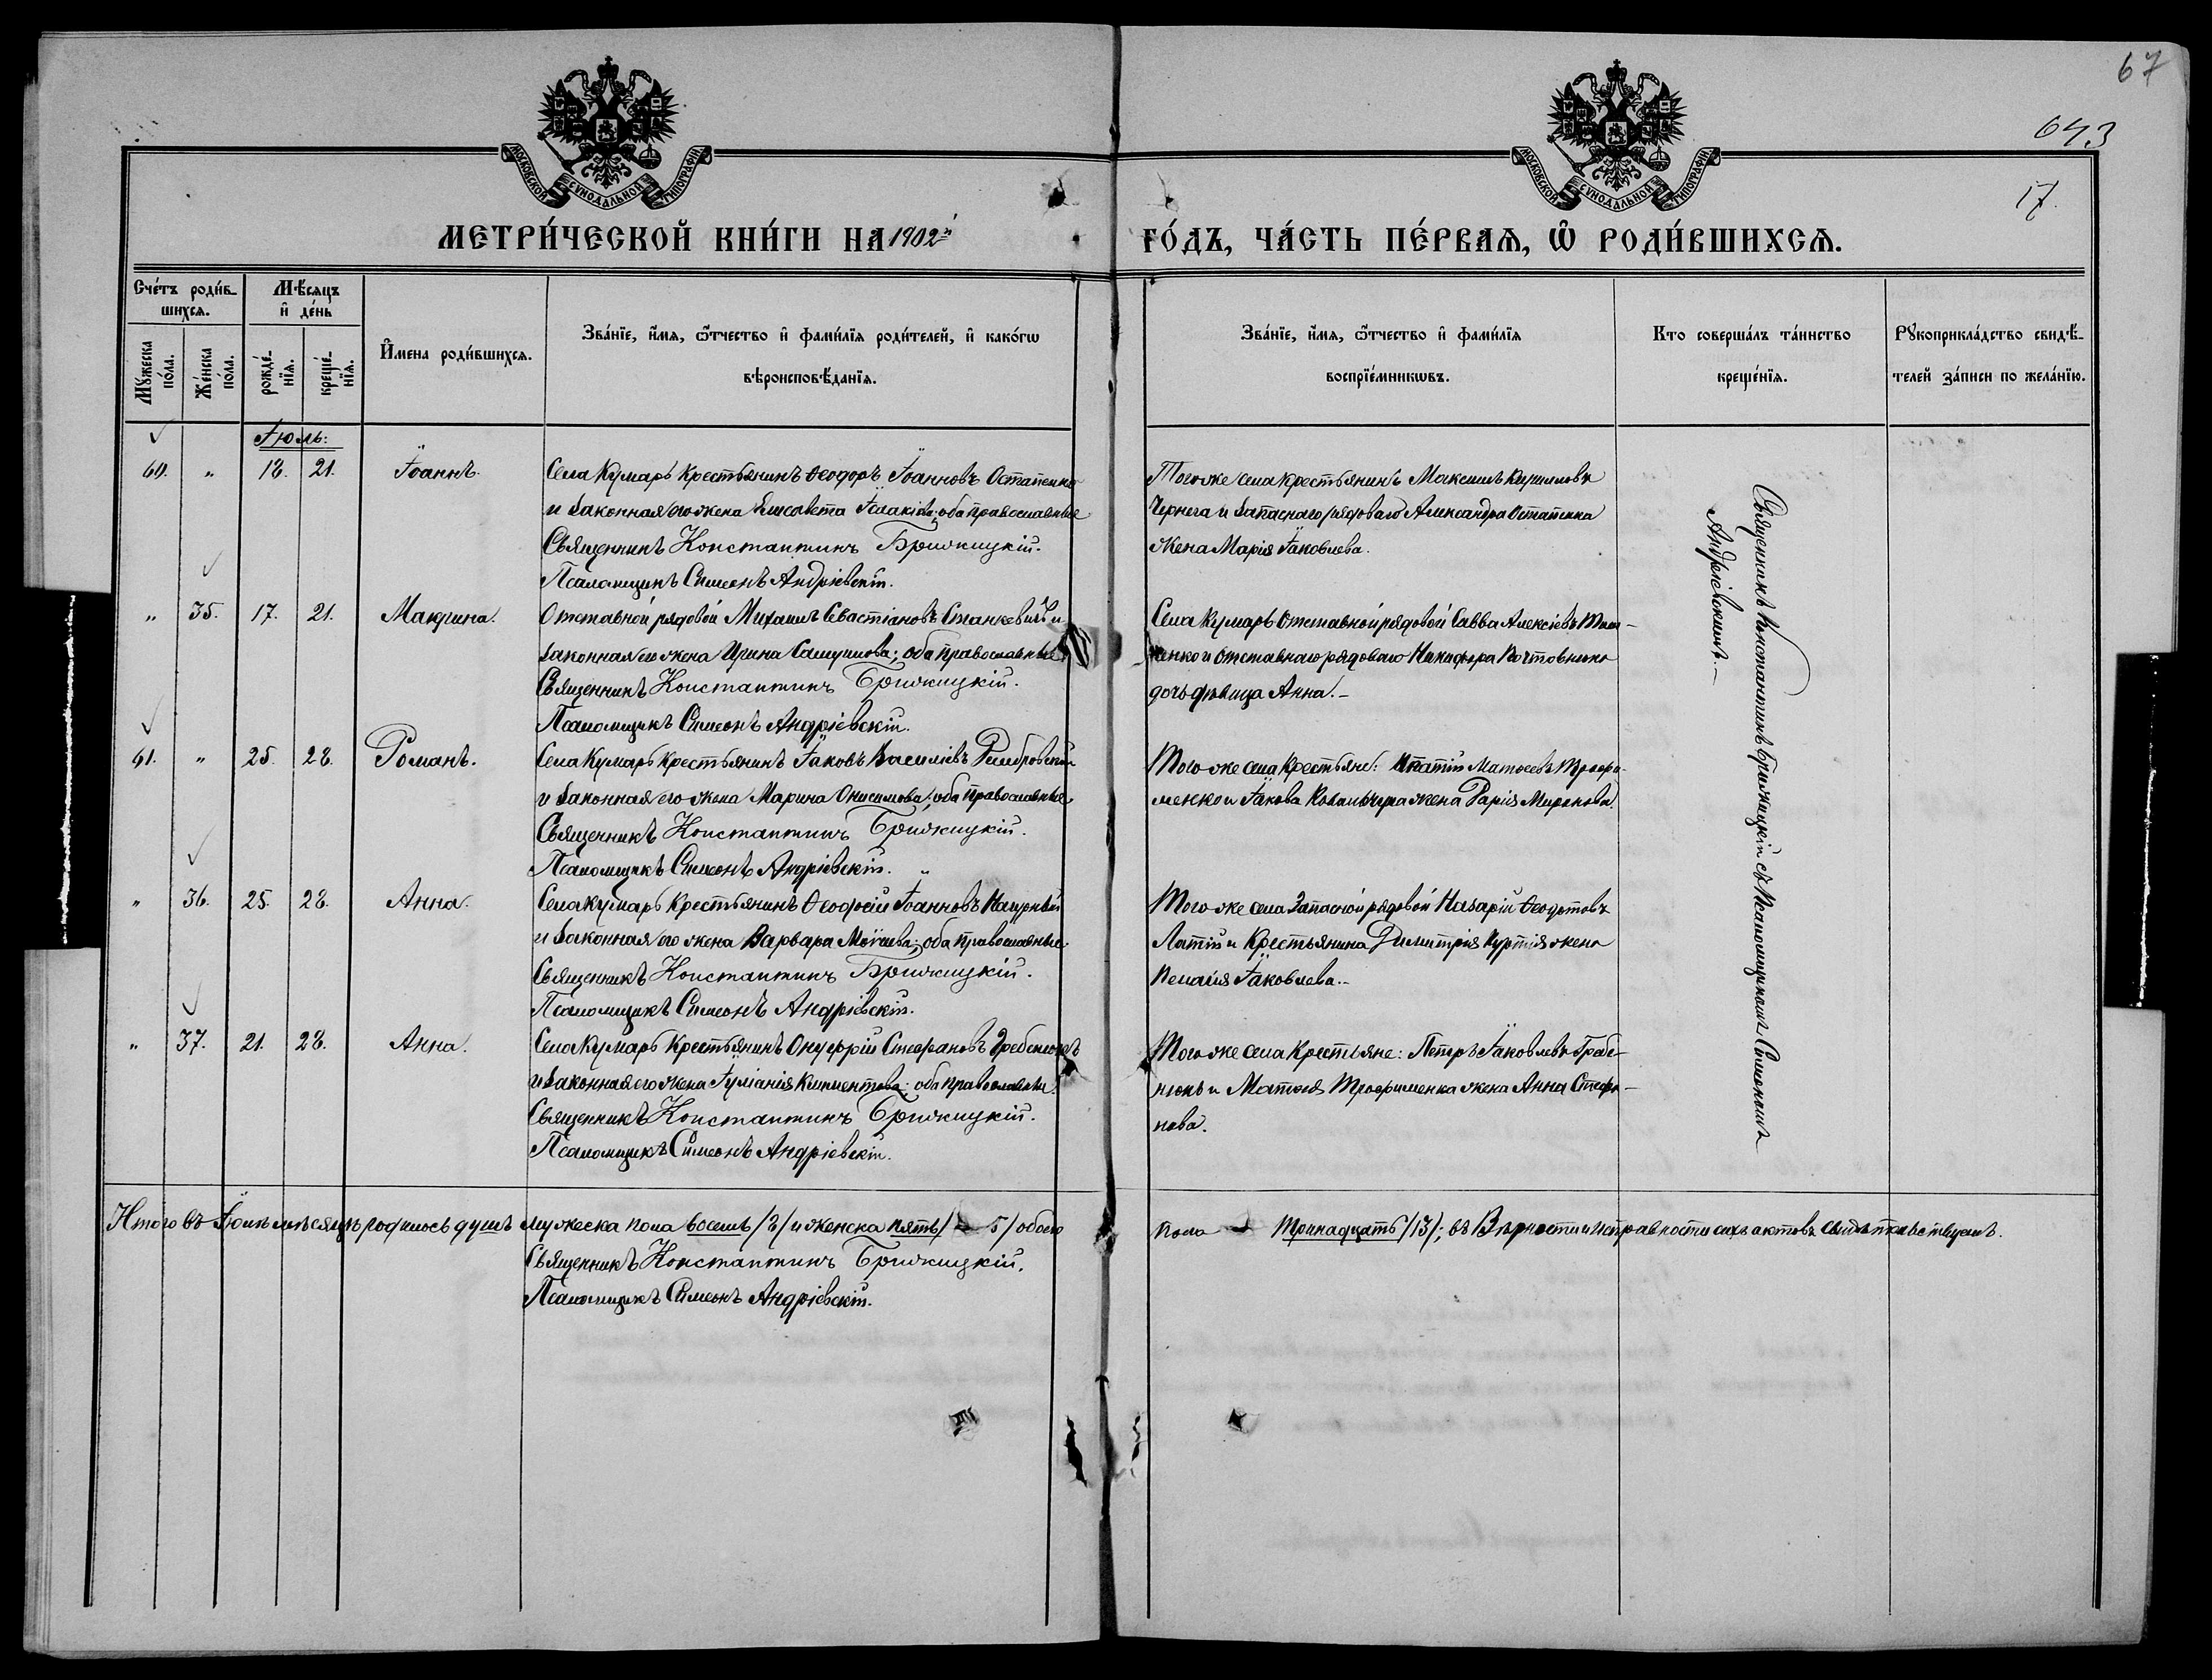 67
643
17.
МОСКОВСКОЙ СѴНОДАЛЬНОЙ ТИПОГРАФІИ.
МОСКОВСКОЙ СѴНОДАЛЬНОЙ ТИПОГРАФІИ.
МЕТРИ́ЧЕСКОЙ КНИ́ГИ НА 1902й
ГО́ДЪ, ЧА́СТЬ ПЕ́РВАѦ, Ѡ҆ РОДИ́ВШИХСѦ.
Сче́тъ роди́в-
шихсѧ.
Мꙋжеска по́ла.
Же́нска по́ла.
Мѣ́сяцъ
и҆ де́нь
рожде́-
нїѧ.
креще́-
нїѧ.
И҆мена роди́вшихсѧ.
Зва́нїе, и҆́мѧ, ѻ҆́тчество и҆ фами́лїѧ роди́телей, и҆ како́гѡ
вѣроисповѣ́данїѧ.
Зва́нїе, и҆́мѧ, ѻ҆́тчество и҆ фами́лїѧ
воспрїе́мникѡвъ.
Кто соверша́лъ та́инство
креще́нїѧ.
Рꙋкоприкла́дство свидѣ́-
телей за́писи по жела́нїю.
Іюль:
60. " 18. 21. Іоаннъ.
Села Кумаръ Крестьянинъ Ѳеодоръ Іоанновъ Остапенко
и законная его жена Елисавета Исаакіева; оба православные
Священникъ Константинъ Брижицкій.
Псаломщикъ Симеонъ Андріевскій.
Того же села Крестьянинъ Максимъ Кирилловъ
Чернега и запаснаго рядоваго Александра Остапенка
жена Марія Іаковлева.
" 35. 17. 21. Макрина.
Отставной рядовой Михаилъ Севастіановъ Станкевичъ и
законная его жена Ирина Самуилова; оба православные
Священникъ Константинъ Брижицкій.
Псаломщикъ Симеонъ Андріевскій.
Села Кумаръ Отставной рядовой Савва Алексіевъ
и отставнаго рядоваго Никифора
дочь дѣвица Анна.-
61. " 25. 28. Романъ.
Села Кумаръ Крестьянинъ Іаковъ Василіевъ
и законная его жена Марина Онисимова; оба православные
Священникъ Константинъ Брижицкій.
Псаломщикъ Симеонъ Андріевскій.
Того же села Крестьяне: Ипатій Матѳеевъ Трофи-
менко и Іакова Ковальчука жена Дарія Миронова.
" 36. 25. 28. Анна.
Села Кумаръ Крестьянинъ Ѳеодосій Іоанновъ
и законная его жена Варвара Моѵсіева; оба православные.
Священникъ Константинъ Брижицкій.
Псаломщикъ Симеонъ Андріевскій.
Того же села Запасной рядовой Назарій Ѳеодотовъ
и Крестьянина Димитрія жена
Пелагія Іаковлева.-
" 37. 21. 28. Анна.
Села Кумаръ Крестьянинъ Онуфрій Стефановъ Гребенюкъ
и законная его жена Іуліанія Климентова; оба православны.
Священникъ Константинъ Брижицкій.
Псаломщикъ Симеонъ Андріевскій.
Того же села Крестьяне: Петръ Іаковлевъ Гребе-
нюкъ и Матѳея Трофименка жена Анна Стефа-
нова.
Священникъ Константинъ Брижицкій съ Псаломщикомъ Симеономъ
Андріевскимъ.-
Итого въ Іюлѣ мѣсяцѣ родилось душъ мужеска пола восемь /8/ и женска пять / 5/ обоего
пола - Тринадцать /13/; въ вѣрности и исправности сихъ актовъ свидѣтельствуемъ.
Священникъ Константинъ Брижицкій.
Псаломщикъ Симеонъ Андріевскій.